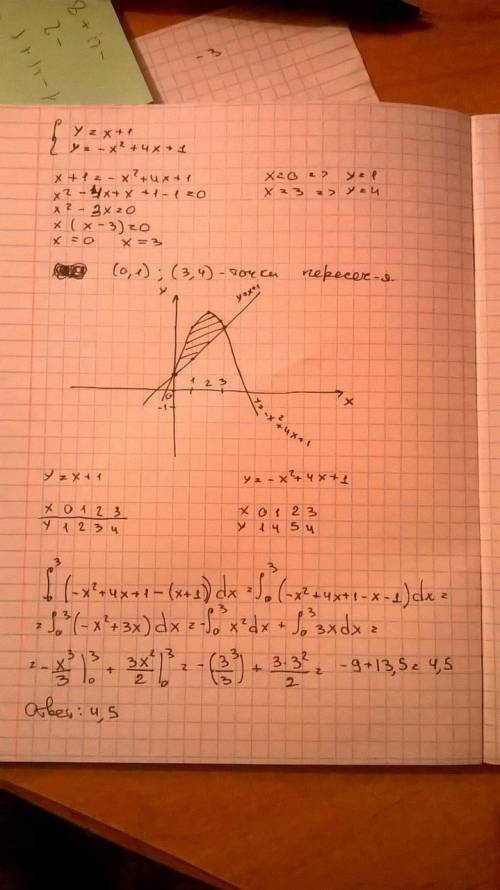 -3
{ y = x+1
y = -x² + 4x + 1
x + 1 = -x² + 4x + 1
x² - 4x + x + 1 - 1 = 0
x² - 3x = 0
x (x - 3) = 0
x = 0 x = 3
x = 0 => y = 1
x = 3 => y = 4
(0, 1) ; (3, 4) - точки пересеч-я.
y
y=x+1
1 2 3
0
x
-1
y=-x²+4x+1
y = x+1
x 0 1 2 3
y 1 2 3 4
y = -x² + 4x + 1
x 0 1 2 3
y 1 4 5 4
∫₀³ (-x² + 4x + 1 - (x+1)) dx = ∫₀³ (-x² + 4x + 1 - x - 1) dx =
= ∫₀³ (-x² + 3x) dx = -∫₀³ x² dx + ∫₀³ 3x dx =
= - x³/3 |₀³ + 3x²/2 |₀³ = - (3³/3) + 3·3²/2 = -9 + 13,5 = 4,5
Ответ: 4,5